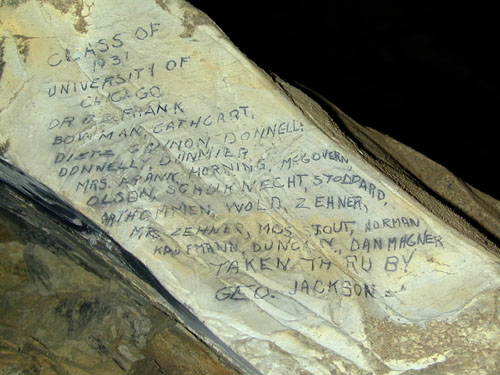 CLASS OF
1931
UNIVERSITY OF
CHICAGO
DR FRANK
BOWMAN, CATHCART,
DIETZ DONNELL,
DONNELLY, DUNMIER,
MRS. FRANK, HORNING, McGOVERN,
OLSON, SCHUKNECHT, STODDARD,
WOLD, ZEHNER,
MRS ZEHNER, STOUT, NORMAN
KAUFMANN, DUNCAN, DAN MAGNER
TAKEN THRU BY
GEO. JACKSON